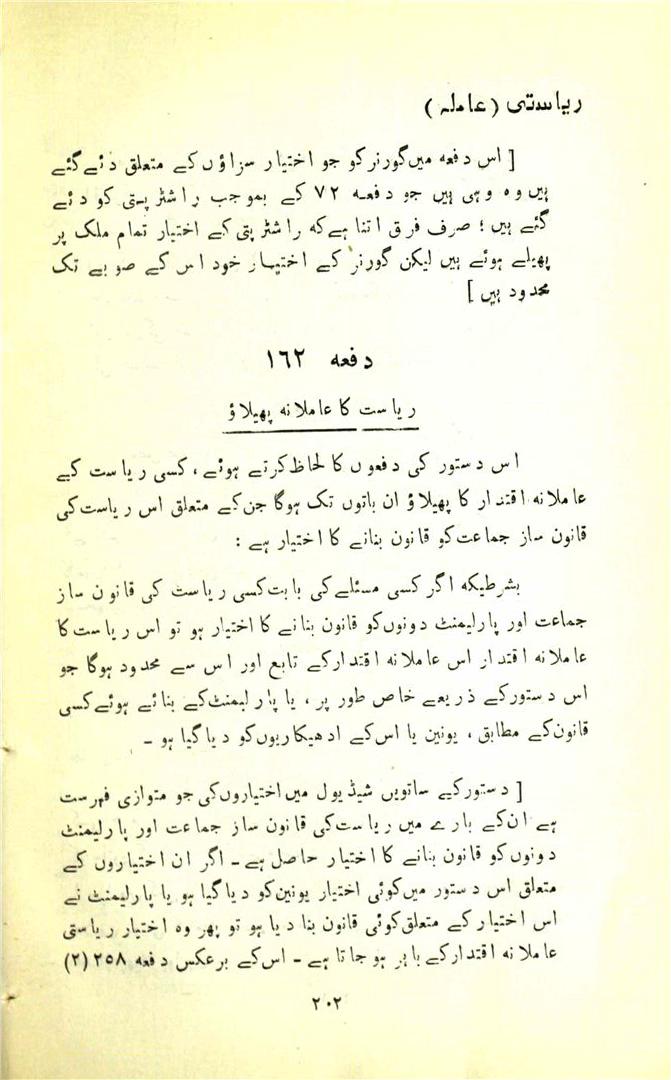 ریاستی (عاملہ)
[ اس دفعہ میں گورنر کو جو اختیار سزاؤں کے متعلق دئے گئے
ہیں وہ وہی ہیں جو دفعہ ۷۲ کے بموجب راشٹرپتی کو دئے
گئے ہیں ؛ صرف فرق اتنا ہے کہ راشٹرپتی کے اختیار تمام ملک پر
پھیلے ہوئے ہیں لیکن گورنر کے اختیار خود اس کے صوبے تک
محدود ہیں ]
دفعہ ۱٦۲
ریاست کا عاملانہ پھیلاؤ
اس دستور کی دفعوں کا لحاظ کرتے ہوئے ، کسی ریاست کے
عاملانہ اقتدار کا پھیلاؤ ان باتوں تک ہوگا جن کے متعلق اس ریاست کی
قانون ساز جماعت کو قانون بنانے کا اختیار ہے :
بشرطیکہ اگر کسی مسئلے کی بابت کسی ریاست کی قانون ساز
جماعت اور پارلیمنٹ دونوں کو قانون بنانے کا اختیار ہو تو اس ریاست کا
عاملانہ اقتدار اس عاملانہ اقتدار کے تابع اور اس سے محدود ہوگا جو
اس دستور کے ذریعے خاص طور پر ، یا پارلیمنٹ کے بنائے ہوئے کسی
قانون کے مطابق ، یونین یا اس کے ادھیکاریوں کو دیا گیا ہو ۔
[ دستور کے ساتویں شیڈیول میں اختیاروں کی جو متوازی فہرست
ہے ان کے بارے میں ریاست کی قانون ساز جماعت اور پارلیمنٹ
دونوں کو قانون بنانے کا اختیار حاصل ہے ۔ اگر ان اختیاروں کے
متعلق اس دستور میں کوئی اختیار یونین کو دیا گیا ہو یا پارلیمنٹ نے
اس اختیار کے متعلق کوئی قانون بنا دیا ہو تو پھر وہ اختیار ریاستی
عاملانہ اقتدار کے باہر ہو جاتا ہے ۔ اس کے برعکس دفعہ ۲۵۸ (۲)
۲۰۲